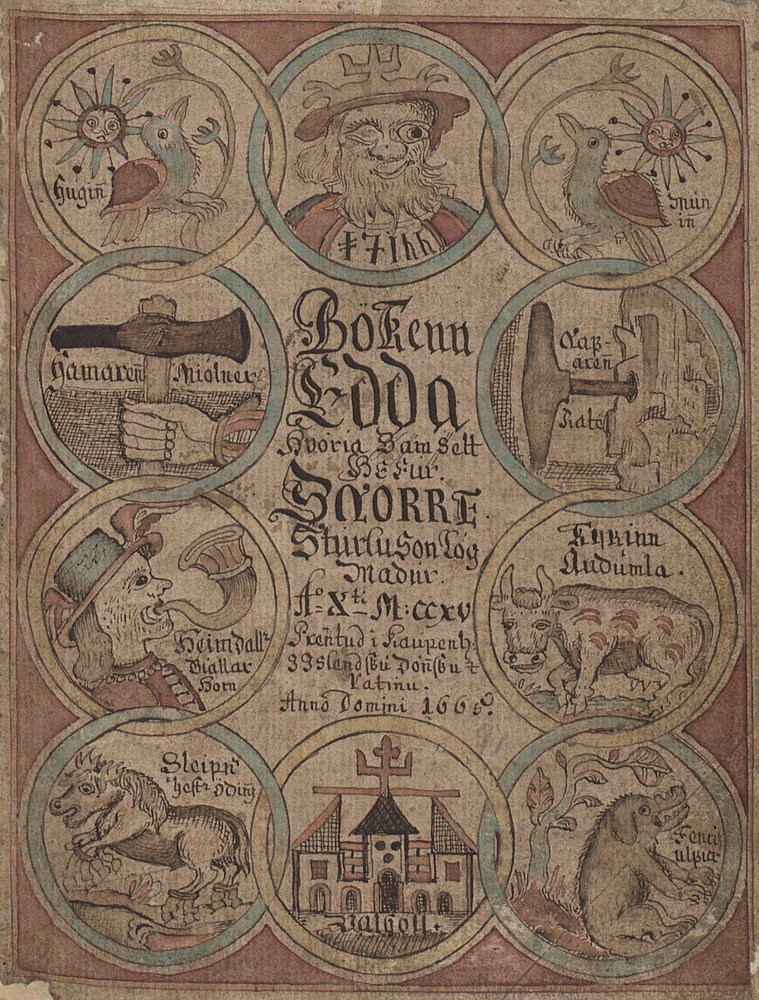 Hugiñ
Mun
iñ
Hamaren Miölner
Rate
Bökenn
Edda
Hvoria Samsett
Hefur
SNORRE
Sturluson Lög
Madur.
Ao Xti M:CCXV
Prentud i Kaupenh:
Islendsku Dönsku &
Latinu.
Anno Domini 1665.
Heimdallr
Giallar
Horn
Kyrinn
Audumla.
Sleipnr
hestr Odins
Valhöll.